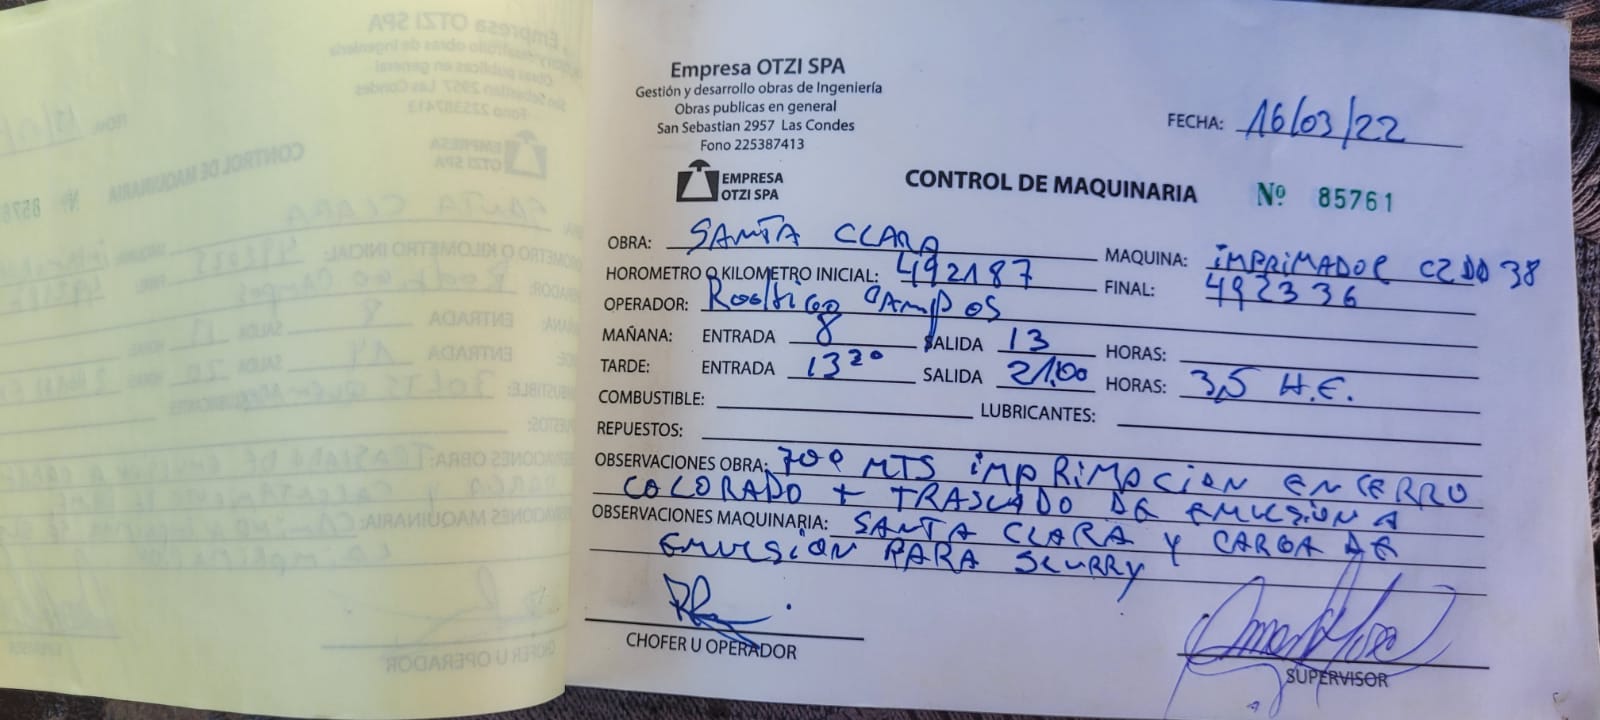 Empresa OTZI SPA
Gestión y desarrollo obras de Ingeniería
Obras publicas en general
San Sebastian 2957 Las Condes
Fono 225387413
FECHA: 16/03/22
EMPRESA
OTZI SPA
CONTROL DE MAQUINARIA Nº 85761
OBRA: SANTA CLARA MAQUINA: IMPRIMADOR CZDD 38
HOROMETRO O KILOMETRO INICIAL: 492187 FINAL: 492336
OPERADOR: Rodrigo CAMPOS
MAÑANA: ENTRADA 8 SALIDA 13 HORAS:
TARDE: ENTRADA 13³⁰ SALIDA 21:00 HORAS: 3,5 H.E.
COMBUSTIBLE: LUBRICANTES:
REPUESTOS:
OBSERVACIONES OBRA: 700 MTS IMPRIMACION EN CERRO
COLORADO + TRASLADO DE EMULSIÓN A
OBSERVACIONES MAQUINARIA: SANTA CLARA Y CARGA DE
EMULSIÓN PARA SLURRY
CHOFER U OPERADOR
SUPERVISOR